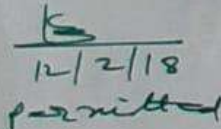 12/2/18
permitted